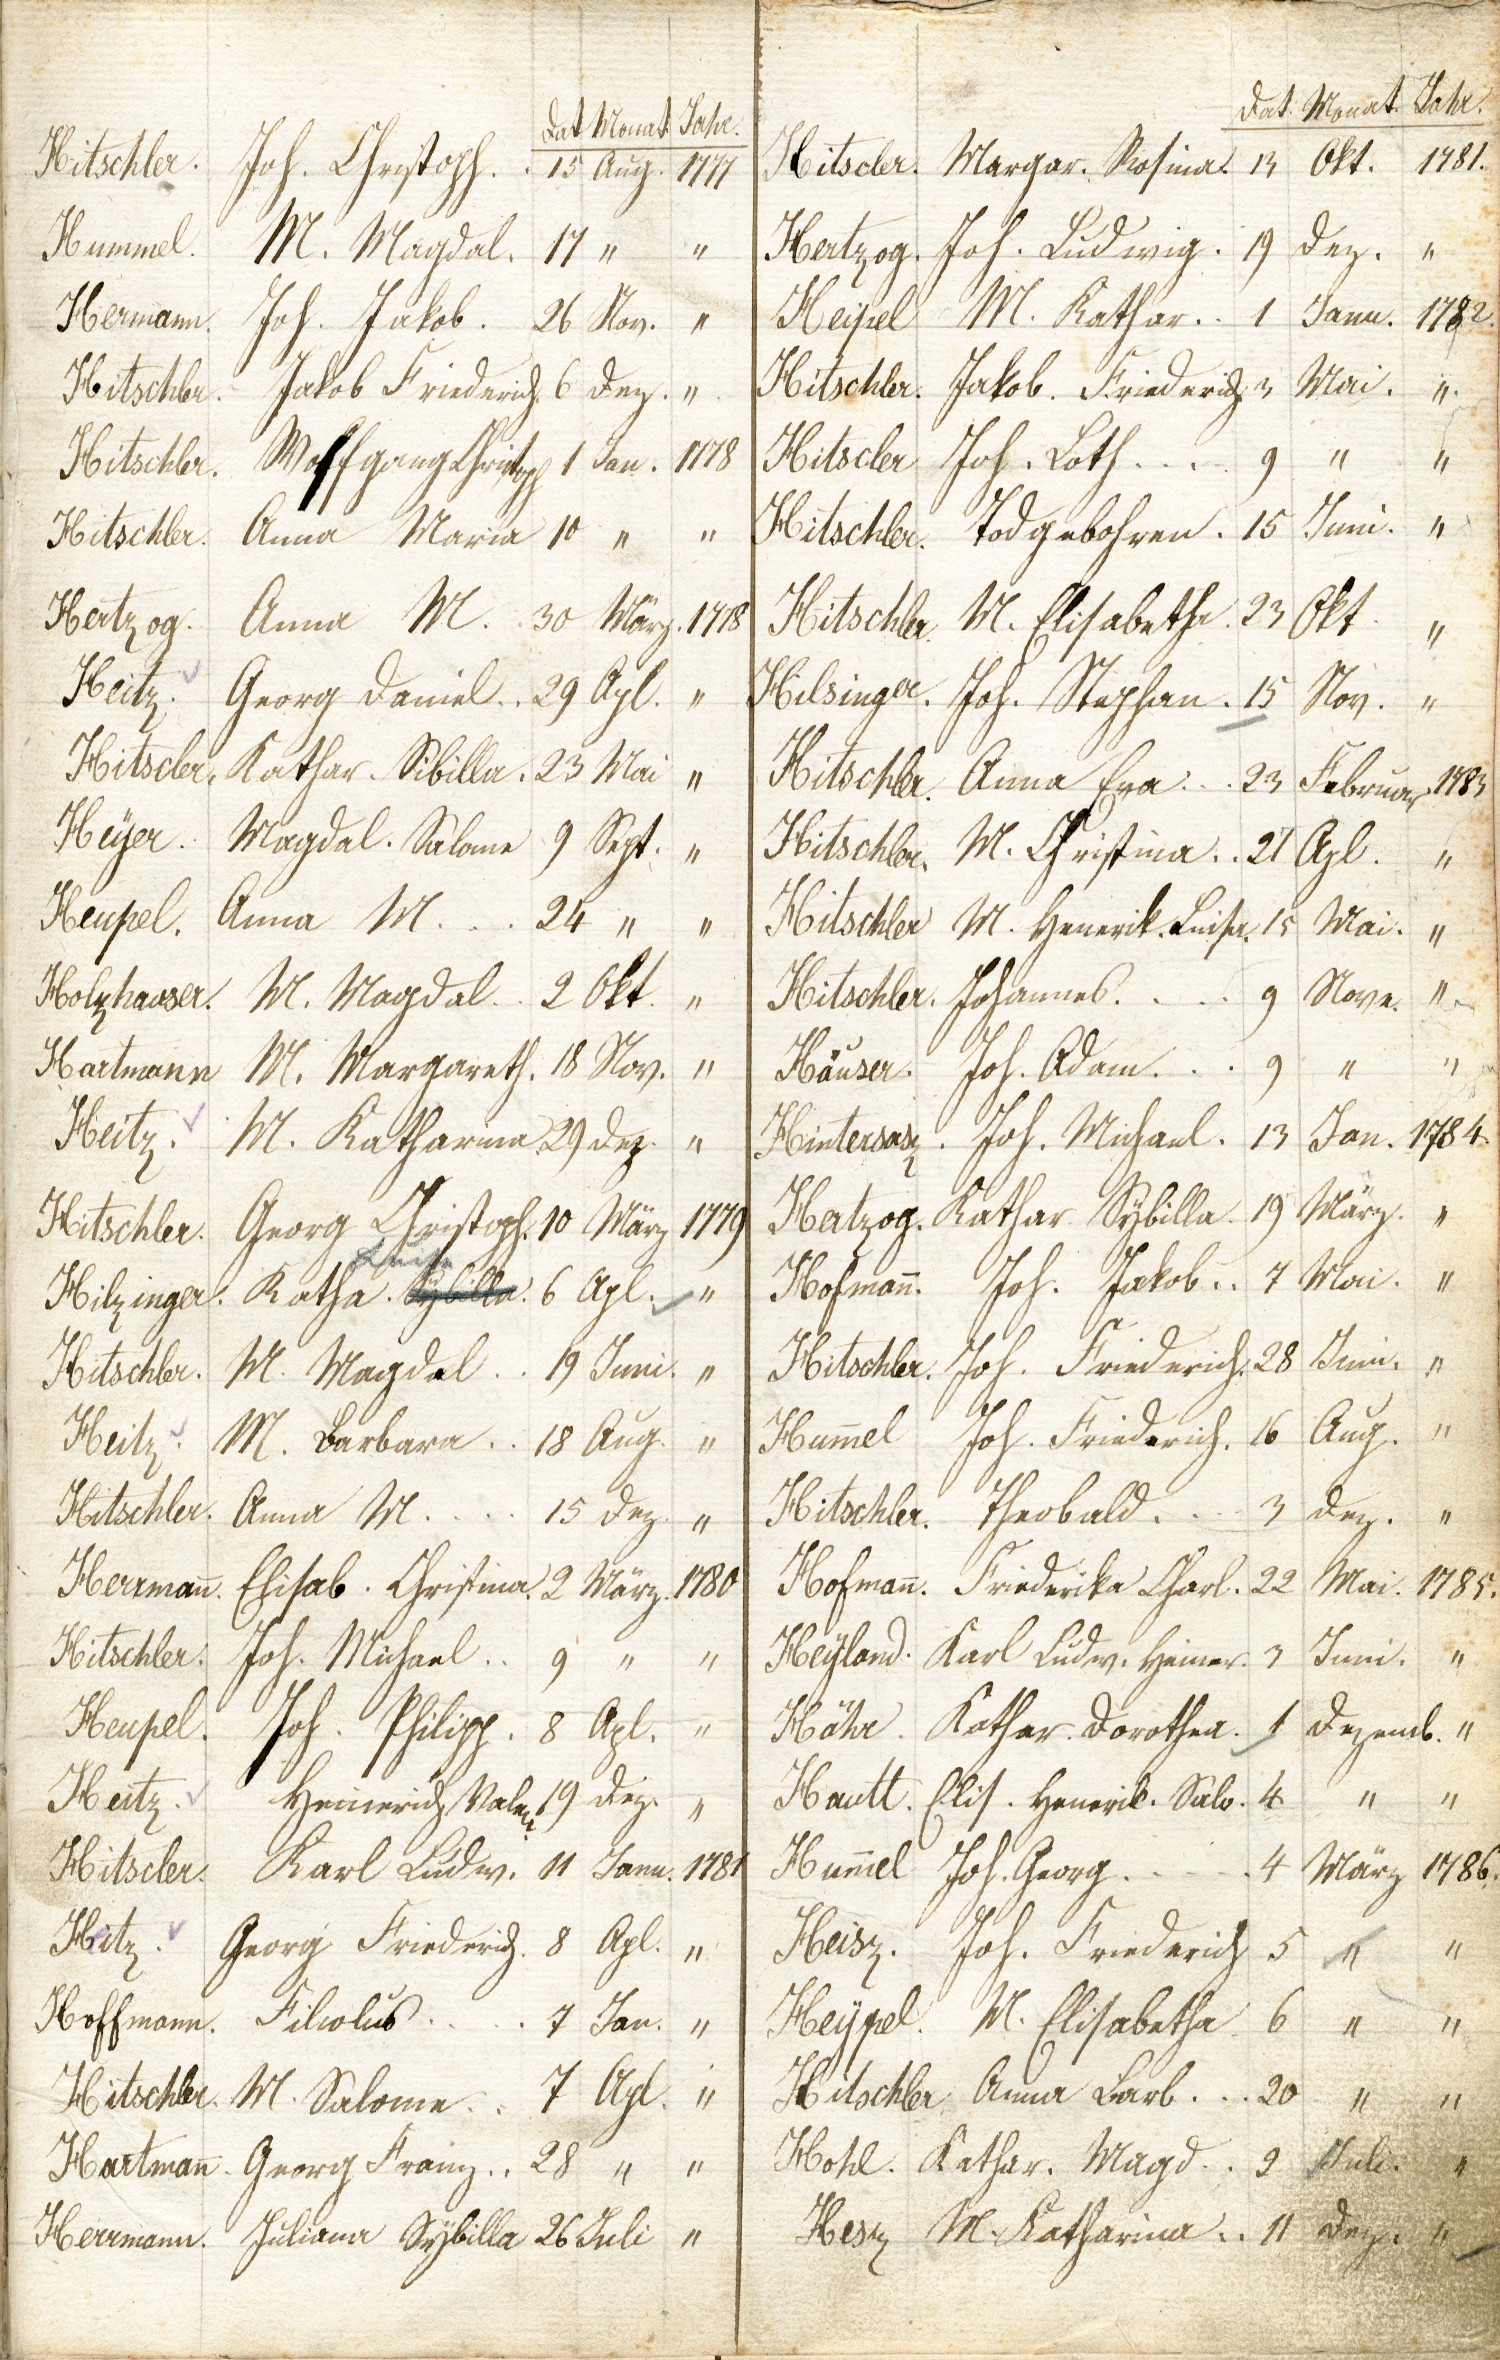 Dat. Monat. Jahr.
Hitschler. Joh. Christoph. . 15 Aug. 1777
Hummel. M. Magdal. 17 " "
Hermann. Joh. Jakob. 26 Nov. "
Hitschler. Jakob Friederich 6 Dez. "
Hitschler. Wolfgang Christoph 1 Jan. 1778
Hitschler. Anna Maria 10 " "
Hertzog. Anna M. . 30 März. 1778
Heitz. Georg Daniel. . 29 Apl. "
Hitscler. Kathar. Sibilla. 23 Mai "
Heÿer. Magdal. Salome 9 Sept. "
Heupel. Anna M. . . . 24 " "
Holzhauser. M. Magdal. . 2 Okt. "
Hartmann M. Margareth. 18 Nov. "
Heitz. M. Katharina 29 Dez. "
Hitschler. Georg Christoph. 10 März 1779
Hilzinger. Katha. Sybilla. 6 Apl. "
Hitschler. M. Magdal. . 19 Juni. "
Heitz. M. Barbara . . 18 Aug. "
Hitschler. Anna M. . . . 15 Dez. "
Herrmañ. Elisab. Christina. 2 März. 1780
Hitschler. Joh. Michael . . 9 " "
Heupel. Joh. Philipp. 8 Apl. "
Heitz. Heinerich Valen. 19 Dez. "
Hitscler. Karl Ludw. 11 Jann. 1781
Heitz. Georg Friederich. 8 Apl. "
Hoffmann. Filiolus . . . . 7 Jan. "
Hitschler. M. Salome. . 7 Apl. "
Hartmañ. Georg Franz. . 28 " "
Herrmann. Juliana Sÿbilla 26 Juli "
Dat. Monat. Jahr.
Hitscler. Margar. Rosina. 13 Okt. 1781.
Hertzog. Joh. Ludwig. 19 Dez. "
Heipel M. Kathar. . 1 Jann. 1782.
Hitschler. Jakob. Friederich 3 Mai. "
Hitscler Joh. Loth. . . . 9 " "
Hitschler. Todgebohren. 15 Juni. "
Hitschler. M. Elisabetha. 23 Okt. "
Hilsinger. Joh. Stephan. 15 Nov. "
Hitschler. Anna Eva . . . 23 Februar. 1783
Hitschler. M. Christina. . 21 Apl. "
Hitschler M. Henerik. Luisa. 15 Mai. "
Hitschler. Johannes. . . . 9 Nove. "
Häuser. Joh. Adam. . . 9 " "
Hintersasz. Joh. Michael. 13 Jan. 1784.
Hertzog. Kathar Sÿbilla. 19 März. "
Hofmañ. Joh. Jakob. . 7 Mai. "
Hitschler. Joh. Friederich. 28 Juni. "
Hum̃el Joh. Friederich. 16 Aug. "
Hitschler. Theobald. . . 3 Dez. "
Hofmañ. Friederika Charl. 22 Mai. 1785.
Heÿland. Karl Ludw. Heiner. 3 Juni. "
Höhr. Kathar. Dorothea. 1 Dezemb. "
Hautt. Elis. Henerik. Salo. 4 " "
Hum̃el Joh. Georg. . . . 4 März 1786.
Heisz. Joh. Friederich 5 " "
Heÿpel. M. Elisabetha 6 " "
Hitschler Anna Barb. . . 20 " "
Hohl. Kathar. Magd. . 9 Juli. "
Hesz M. Katharina . . 11 Dez. "